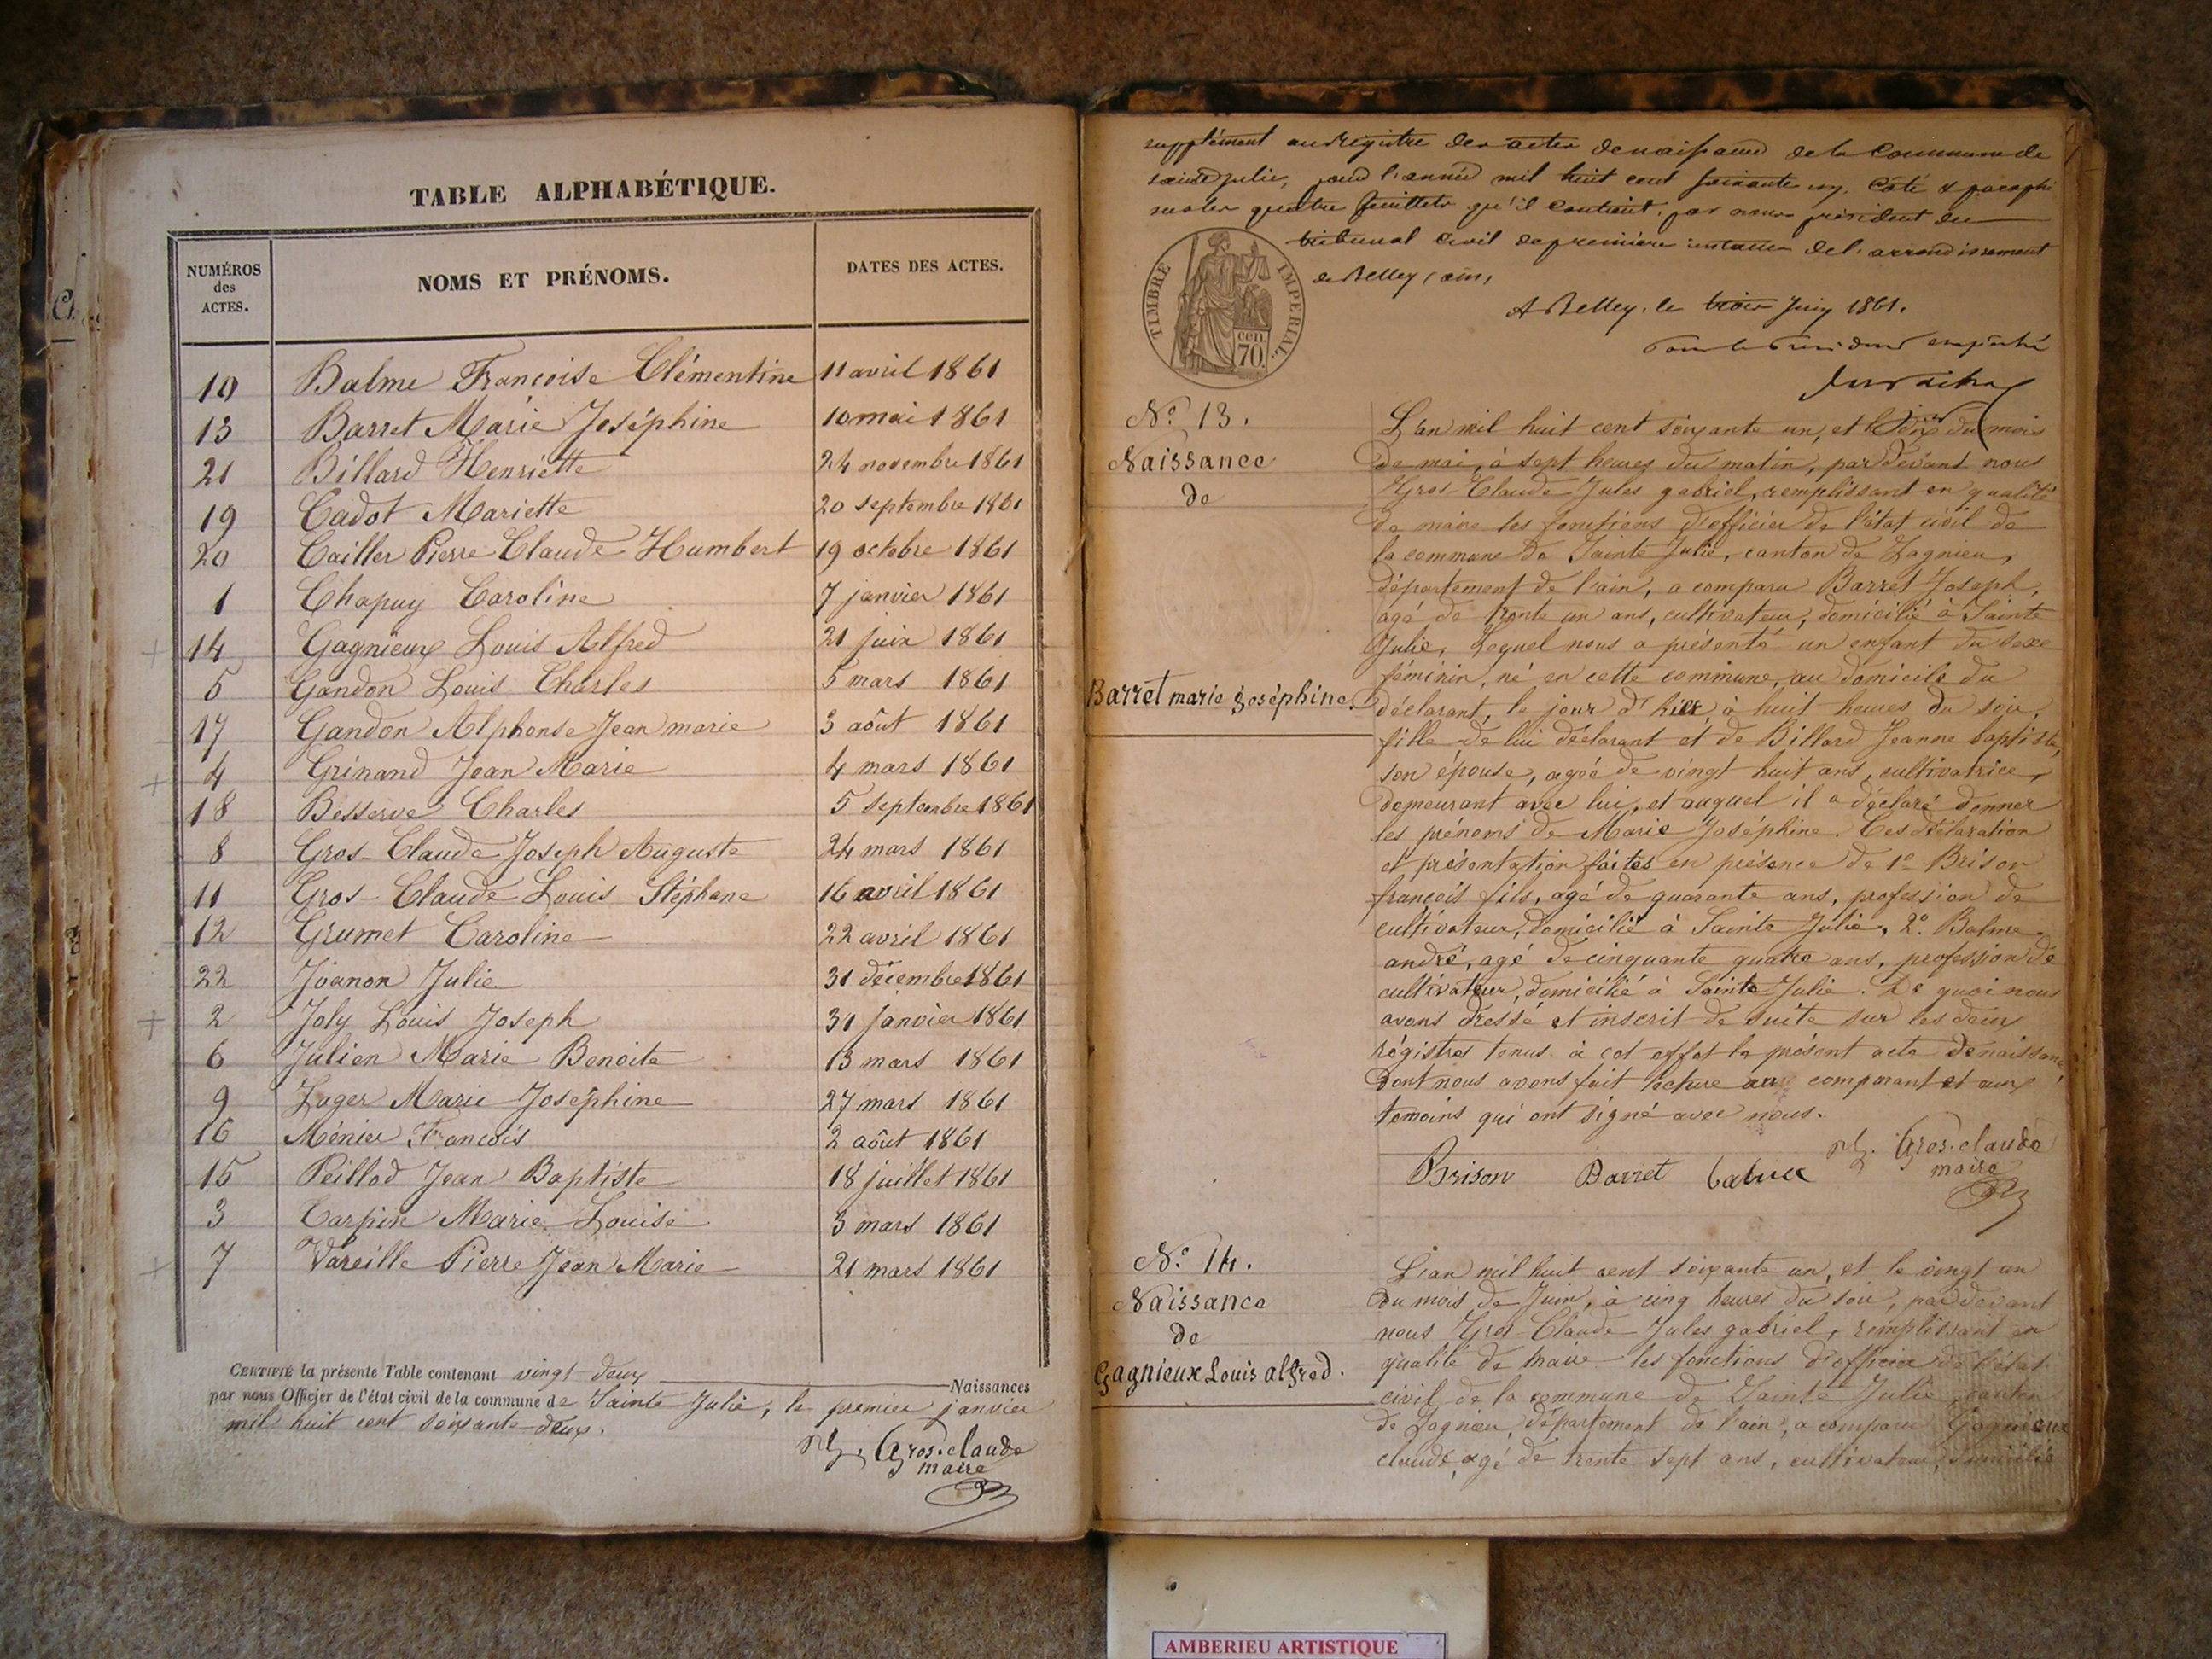 TABLE ALPHABÉTIQUE.
NUMÉROS des ACTES. NOMS ET PRÉNOMS. DATES DES ACTES.
10 Balme Françoise Clémentine 11 avril 1861
13 Barret Marie Joséphine 10 mai 1861
21 Billard Henriette 24 novembre 1861
19 Cadot Mariette 20 septembre 1861
20 Cailler Pierre Claude Humbert 19 octobre 1861
1 Chapuy Caroline 7 janvier 1861
14 Gagnieux Louis Alfred 21 juin 1861
5 Gandon Louis Charles 5 mars 1861
17 Gandon Alphonse Jean marie 3 août 1861
4 Grinand Jean Marie 4 mars 1861
18 Besserve Charles 5 septembre 1861
8 Gros-Claude Joseph Auguste 24 mars 1861
11 Gros-Claude Louis Stéphane 16 avril 1861
12 Grumet Caroline 22 avril 1861
22 Joanon Julie 31 décembre 1861
2 Joly Louis Joseph 31 janvier 1861
6 Julien Marie Benoite 13 mars 1861
9 Lager Marie Joséphine 27 mars 1861
16 Ménier François 2 août 1861
15 Peillod Jean Baptiste 18 juillet 1861
3 Carpin Marie Louise 3 mars 1861
7 Vareille Pierre Jean Marie 21 mars 1861
CERTIFIÉ la présente Table contenant vingt-deux Naissances
par nous Officier de l'état civil de la commune de Sainte Julie, le premier janvier
mil huit cent soixante-deux.
Gros-claude
maire
supplément au registre des actes de naissance de la Commune de
sainte julie, pour l'année mil huit cent soixante un, Coté & paraphé
sur les quatre feuillets qu'il contient, par nous président du
tribunal civil de première instance de l'arrondissement
de Belley (ain,
A Belley, le trois Juin 1861.
Pour le Président empêché
TIMBRE IMPÉRIAL.
cen.
70.
N.° 13.
Naissance
de
Barret marie joséphine.
L'an mil huit cent soixante un, et le dix du mois
de mai, à sept heures du matin, par devant nous
Gros-Claude Jules gabriel, remplissant en qualité
de maire les fonctions d'officier de l'état civil de
la commune de Sainte Julie, canton de Lagnieu,
département de l'ain, a comparu Barret Joseph,
agé de trente un ans, cultivateur, domicilié à Sainte
Julie, Lequel nous a présenté un enfant du sexe
féminin, né en cette commune, au domicile du
déclarant, le jour d'hier, à huit heures du soir,
fille de lui déclarant et de Billard Jeanne baptiste,
son épouse, agée de vingt huit ans, cultivatrice,
demeurant avec lui, et auquel il a déclaré donner
les prénoms de Marie Joséphine. Ces déclaration
et présentation faites en présence de 1° Brison
françois fils, agé de quarante ans, profession de
cultivateur, domicilié à Sainte Julie, 2° Balme
andré, agé de cinquante quatre ans, profession de
cultivateur, domicilié à Sainte Julie. De quoi nous
avons dressé et inscrit de suite sur les deux
régistres tenus à cet effet le présent acte de naissance,
dont nous avons fait lecture au comparant et aux
témoins qui ont signé avec nous.
Brison Barret Gros-claude
maire
N.° 14.
Naissance
de
Gagnieux Louis alfred.
L'an mil huit cent soixante un, et le vingt un
du mois de Juin, à cinq heures du soir, par devant
nous Gros-Claude Jules gabriel, remplissant en
qualité de maire les fonctions d'officier de l'état
civil de la commune de Sainte Julie, canton
de Lagnieu, département de l'ain, a comparu Gagnieux
claude, agé de trente sept ans, cultivateur, domicilié
AMBERIEU ARTISTIQUE